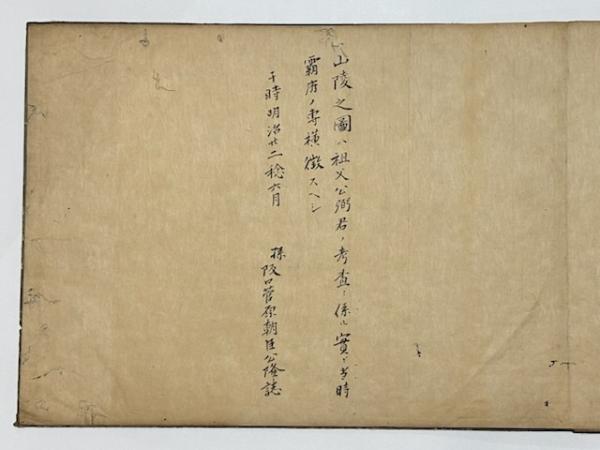 山陵之圖ハ祖父公弼君ノ考査ニ係ル實ニ当時
霸府ノ専横徴スヘシ
于時明治廿二稔六月
孫
阪口菅原朝臣公隆誌